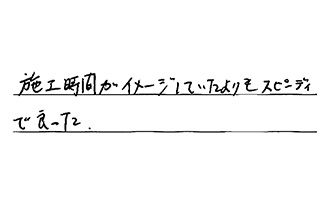 施工時間がイメージしていたよりもスピーディ
で良った.